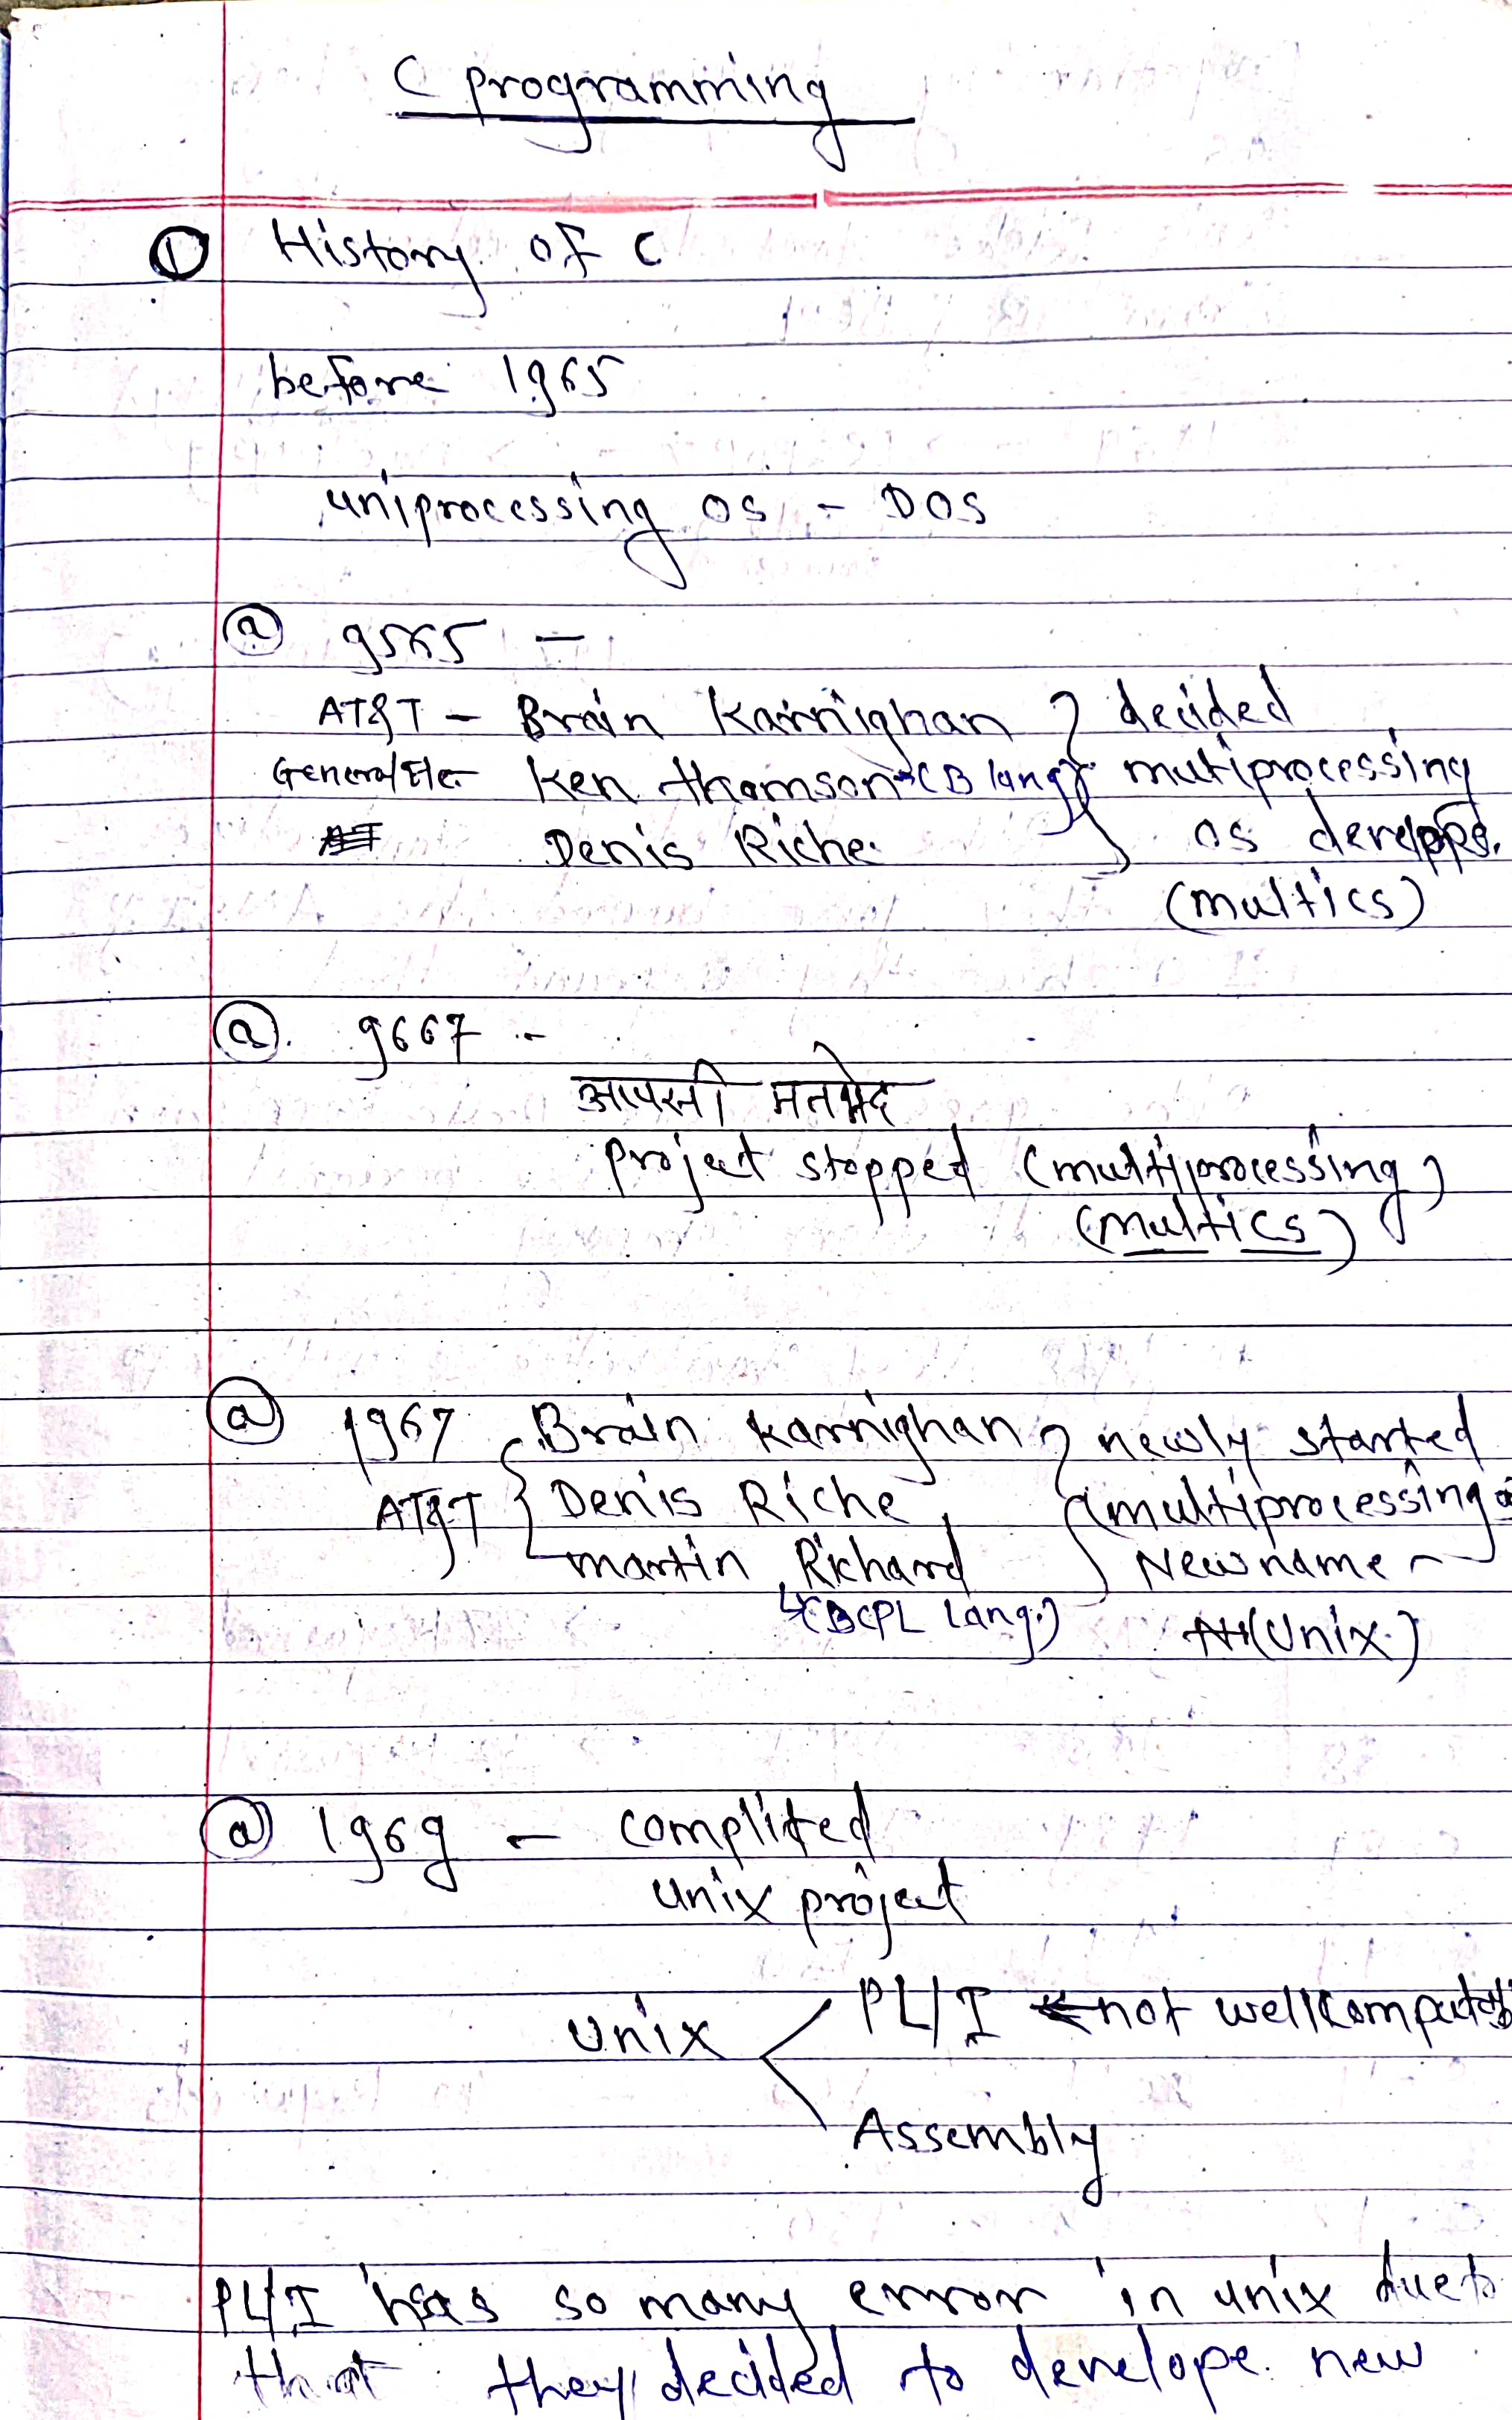 C programming
① History of C
before 1965
uniprocessing OS - DOS
@ 9565 -
AT&T - Brain Karnighan } decided
General Ele- Ken thomson → (B lang) multiprocessing
Denis Riche OS
(multics)
@ 9667 -
आपसी मतभेद
project stopped (multiprocessing)
(multics)
@ 1967 Brain Karnighan } newly started
AT&T { Denis Riche (multiprocessing
martin Richard New name -
↳(BCPL Lang.) (Unix)
@ 1969 - complited
unix project
unix < PL/I ← not well
Assembly
PL/I has so many error in unix due to
that they decided to develope new